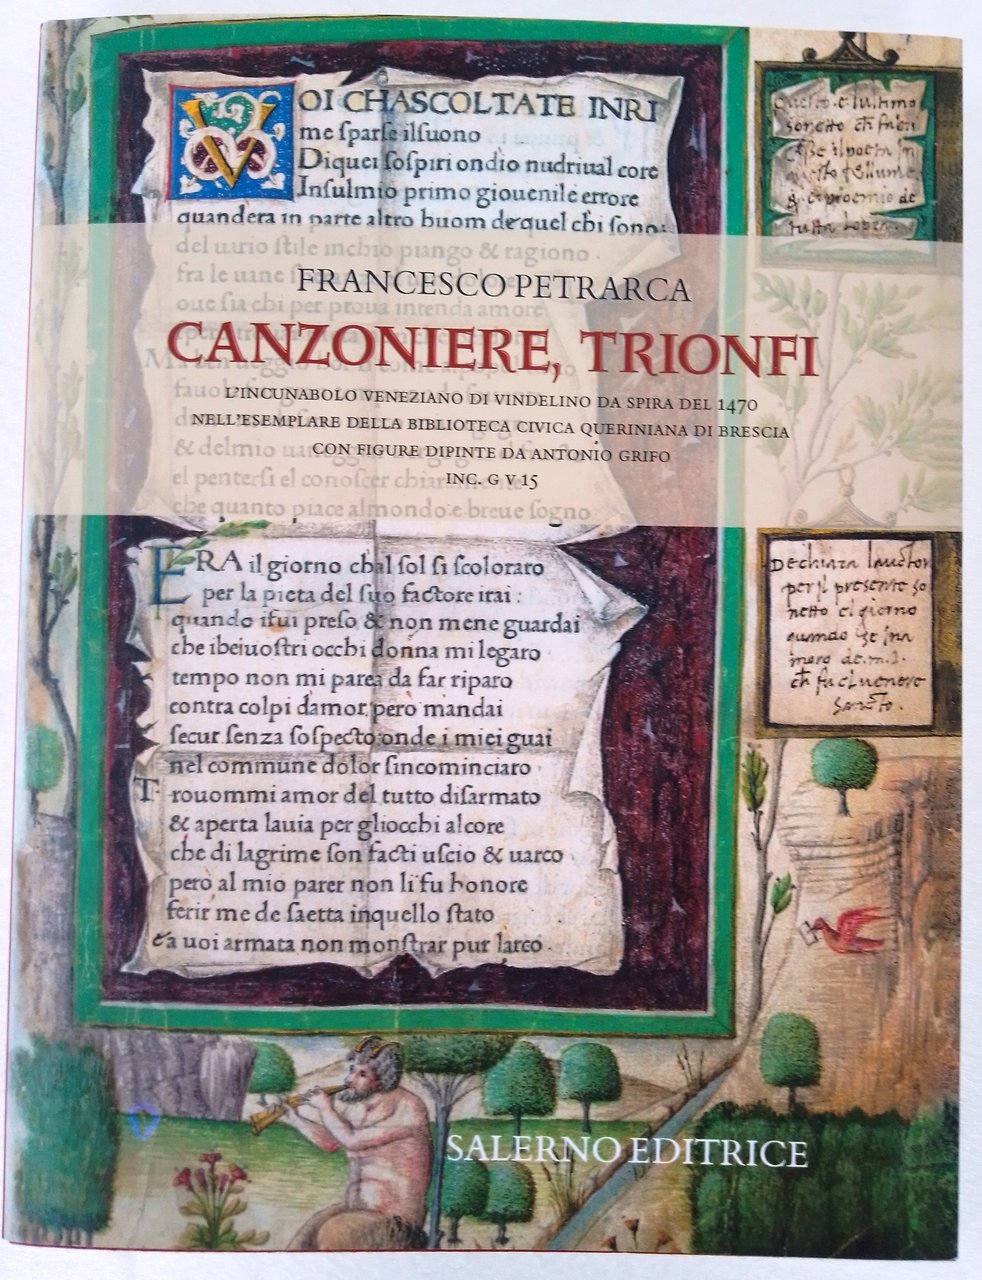 VOI CHASCOLTATE INRI
me ſparſe ilſuono
Diquei ſoſpiri ondio nudriual core
Inſulmio primo giouenile errore
quandera in parte altro huom dequel chi ſono:
del uario ſtile inchio piango & ragiono .
fra le uane
oue ſia chi per proua intenda amore
FRANCESCO PETRARCA
CANZONIERE, TRIONFI
L'INCUNABOLO VENEZIANO DI VINDELINO DA SPIRA DEL 1470
NELL'ESEMPLARE DELLA BIBLIOTECA CIVICA QUERINIANA DI BRESCIA
CON FIGURE DIPINTE DA ANTONIO GRIFO
INC. G V 15
& delmio
el penterſi el conoſcer chiaramente
che quanto piace almondo e breue ſogno
ERA il giorno chal ſol ſi ſcoloraro
per la pieta del ſuo factore irai :
quando ifui preſo & non mene guardai
che ibeiuoſtri occhi donna mi legaro
tempo non mi parea da far riparo
contra colpi damor pero mandai
ſecur ſenza ſoſpecto onde i miei guai
nel commune dolor ſincominciaro .
Trouommi amor del tutto diſarmato
& aperta lauia per gliocchi alcore
che di lagrime ſon facti uſcio & uarco .
pero al mio parer non li fu honore
ferir me de ſaetta inquello ſtato
& a uoi armata non monſtrar pur larco .
Questo e lultimo
sonetto
tutta lopera
Dechiara lauctor
per il presente so
netto el giorno
quando se inna
moro de.m.l.
ch fu el uenere
sancto .
SALERNO EDITRICE